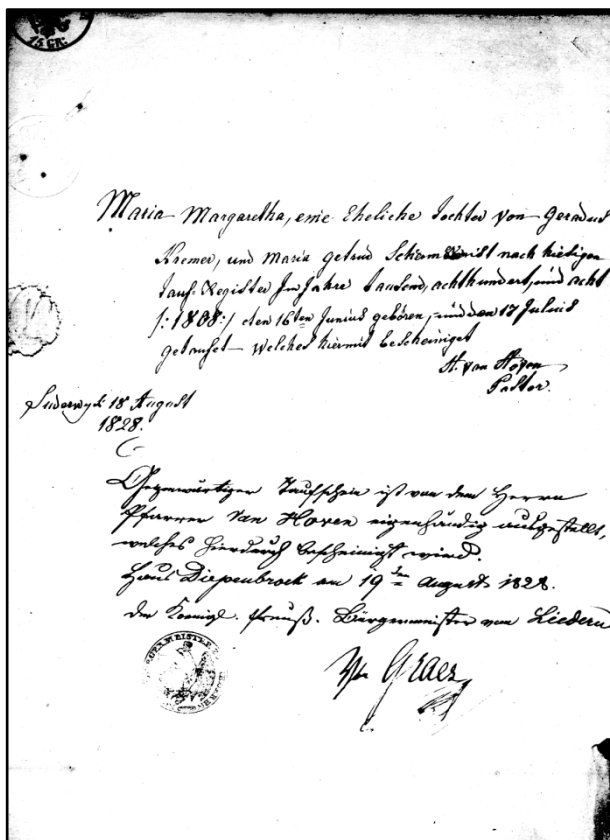 15 GR:
Maria Margaretha, eine Eheliche Tochter von Geradus
Kremer, und Maria getrud ist nach hiesigen
Tauf-Register Im Jahre tausend, achthundert, und acht
/: 1808 :/ den 16ten Junius gebören, und den 17 Julius
getaufet – Welches hiermit bescheiniget
H. van Hoven
Pastor.
Suderwyk 18 August
1828.
Gegenwärtiger Taufschein ist von dem Herrn
Pfarrer Van Hoven eigenhändig ausgestellt,
welches hierdurch bescheinigt wird.
Haus Diepenbrock am 19ten August 1828.
Der Koenigl. Preuß. Bürgermeister von Liedern
Graes